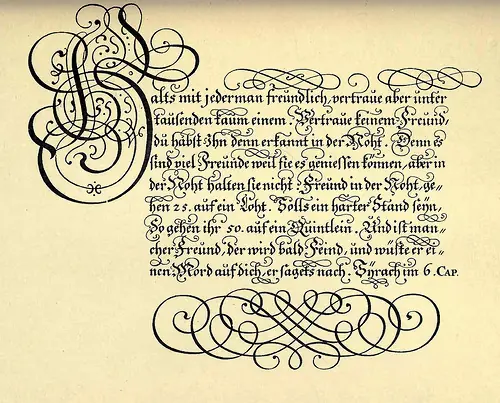 Halts mit jederman freündlich, vertraue aber unter
taüsenden kaüm einem. Vertraue keinem Freünd,
dü habst Ihn denn erkannt in der Noht. Denn es
sind viel Freünde weil sie es geniessen können, aber in
der Noht halten sie nicht: Freünd in der Noht, ge=
hen 25. auf ein Loht. Solls ein harter Stand seÿn,
So gehen ihr 50. auf ein Quintlein. Und ist man=
cher Freund, der wird bald Feind, und wüste er ei=
nen Mord auf dich, er sagets nach. Sÿrach im 6. CAP.